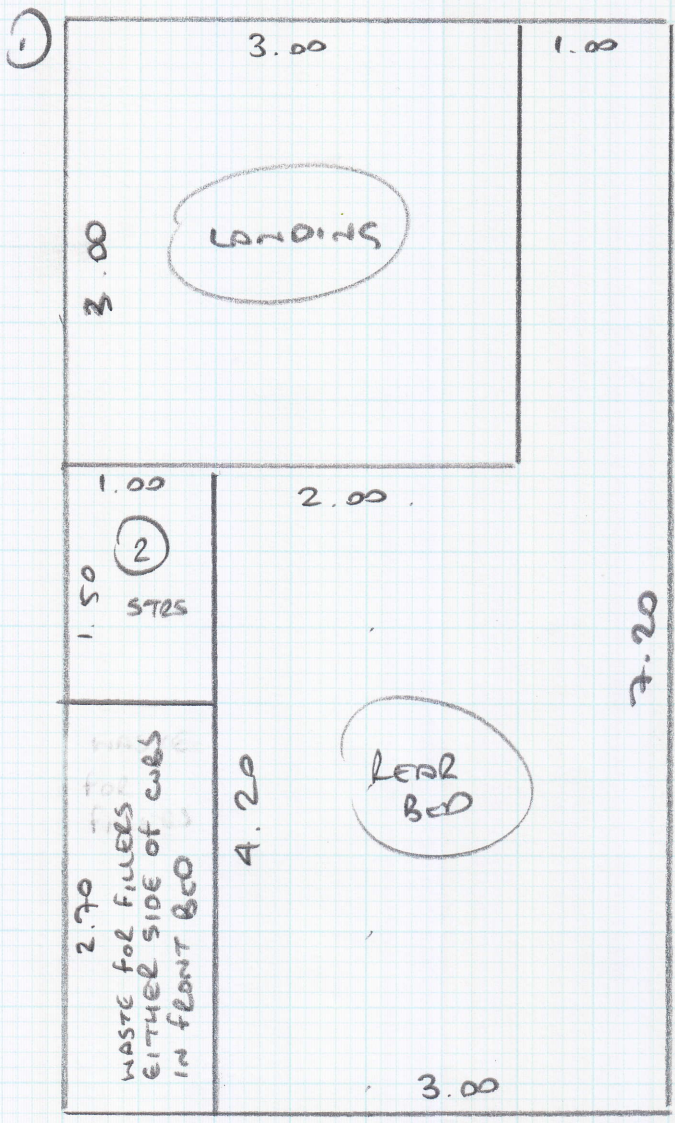 1
3.00
1.00
3.00
LANDING
1.00
2.00
2
1.50
STRS
7.20
REAR
BED
4.20
2.70
WASTE FOR FILLERS
EITHER SIDE OF CUBS
IN FRONT BED
3.00